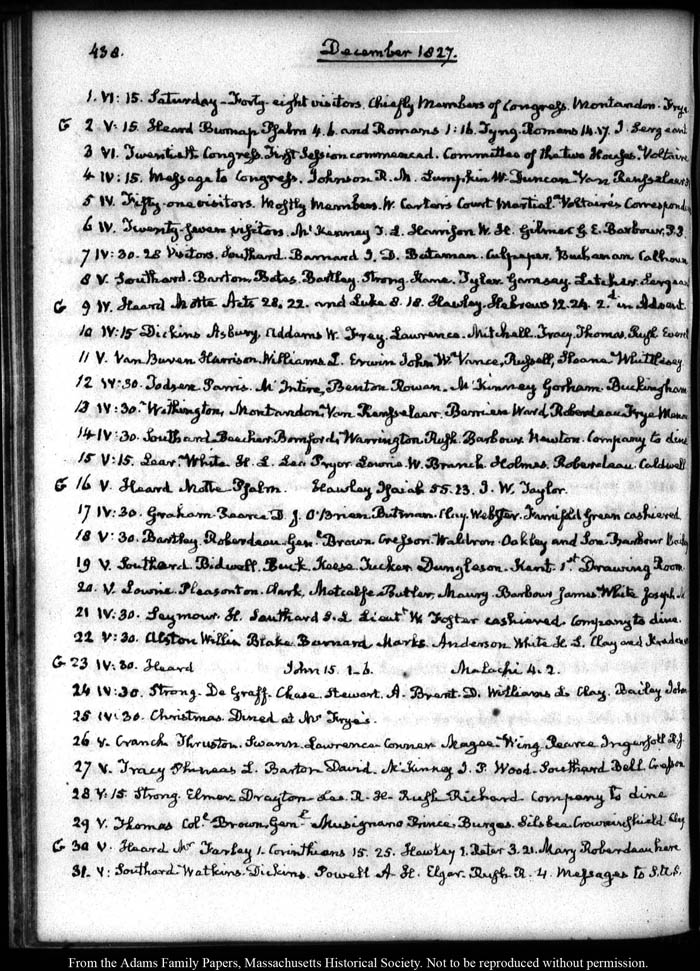 438.
December 1827.
1. VI: 15. Saturday - Forty-eight visitors. Chiefly Members of Congress. Montandon. Frye
G 2 V: 15 Heard Burnap Psalm 4. 6. and Romans 1: 16. Tyng. Romans 14. 17. J. Sergeant
3 VI. Twentieth Congress. First Session commenced. Committee of the two Houses. Voltaire
4 IV: 15. Message to Congress. Johnson R. M. Lumpkin W. Duncan Van Rensselaer
5 IV. Fifty-one visitors. Mostly Members. W. Carter's Court Martial. Voltaire's Correspond
6 IV. Twenty-seven visitors. McKenney T. L. Harrison W. H. Gilmer G. E. Barbour, P. P.
7 IV: 30. 28 Visitors. Southard. Barnard I. D. Bateman. Culpeper. Buchanan Calhoun
8 V. Southard. Barton. Bates. Bartley. Strong. Kane. Tyler. Garnsey. Letcher. Sergean
G 9 IV. Heard Motte Acts 28. 22. and Luke 8. 18. Hawley. Hebrews 12. 24. 2d in Advent.
10 IV: 15 Dickins Asbury. Addams W. Frey. Lawrence. Mitchell. Tracy. Thomas. Rush Everett
11 V. Van Buren Harrison. Williams L. Erwin John Wm Vance, Russell, Sloane Whittlesey
12 IV: 30. Parris. McIntire, Benton Rowan. McKinney Gorham. Buckingham
13 IV: 30. Withington, Montandon, Van Rensselaer. Berrien Ward, Roberdeau Frye
14 IV: 30. Southard Beecher Bomford, Warrington Rush. Barbour. Newton. Company to dine
15 V: 15. Lear. White H. L. Lee Pryor Lowrie W. Branch Holmes. Roberdeau. Caldwell
G 16 V. Heard Motte Psalm. Hawley Isaiah 55. 23. J. W. Taylor.
17 IV: 30. Graham. Pearce D. J. O'Brien Bateman. Clay. Webster. Green cashiered
18 V: 30. Bartley, Roberdeau, Genl. Brown Cresson Waldron. Oakley and Son. Barbour Bailey
19 V. Southard Bidwell. Buck. Keese Tucker Dunglison. Kent. 1st Drawing Room.
20. V. Lowrie. Pleasonton. Clark, Metcalfe Butler, Maury. Barbour James. White Joseph M
21 IV: 30. Seymour. H. Southard S. L. Lieutt. W. Foster cashiered. Company to dine.
22 V: 30. Alston Willis Blake Barnard Marks. Anderson White H. L. Clay and
G 23 IV: 30. Heard John 15. 1-6. Malachi 4. 2.
24 IV: 30. Strong. De Graff. Chase. Stewart. A. Brent. D. Williams L. Clay. Bailey John
25 IV: 30. Christmas. Dined at Mr Frye's.
26 V. Cranch Thruston. Swann. Lawrence Conner Magee Wing. Pearce Ingersoll R. J
27 V. Tracy Phineas L. Barton David. McKinney J. P. Wood. Southard Bell. Cresson
28 V: 15 Strong. Elmer Drayton Lee R. H. Rush Richard Company to dine
29 V. Thomas Coll. Brown, Genl. Musignano Prince. Burges. Silsbee Crowninshield. Clay
G 30 V. Heard Mr Farley 1. Corinthians 15. 25. Hawley 1. Peter 3. 21. Mary Roberdeau here
31. V: Southard. Watkins. Dickins. Powell A. H. Elgar. Rush R. 4. Messages to S. U. S.
From the Adams Family Papers, Massachusetts Historical Society. Not to be reproduced without permission.